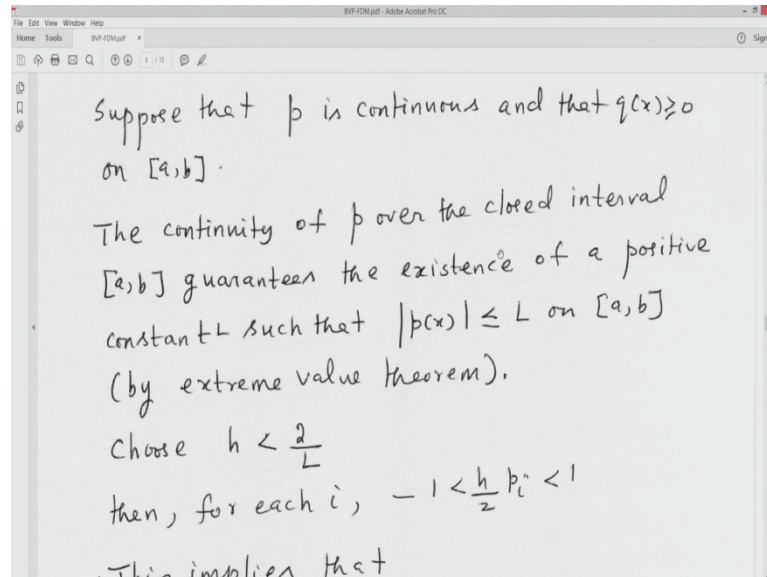 BVP-FDM.pdf - Adobe Acrobat Pro DC
File Edit View Window Help
Home Tools BVP-FDM.pdf × Sign
1 / 13
Suppose that p is continuous and that q(x)≥0
on [a,b].
The continuity of p over the closed interval
[a,b] guarantees the existence of a positive
constant L such that |p(x)| ≤ L on [a,b]
(by extreme value theorem).
Choose h < 2/L
then, for each i, -1 < h/2 p_i < 1
This implies that